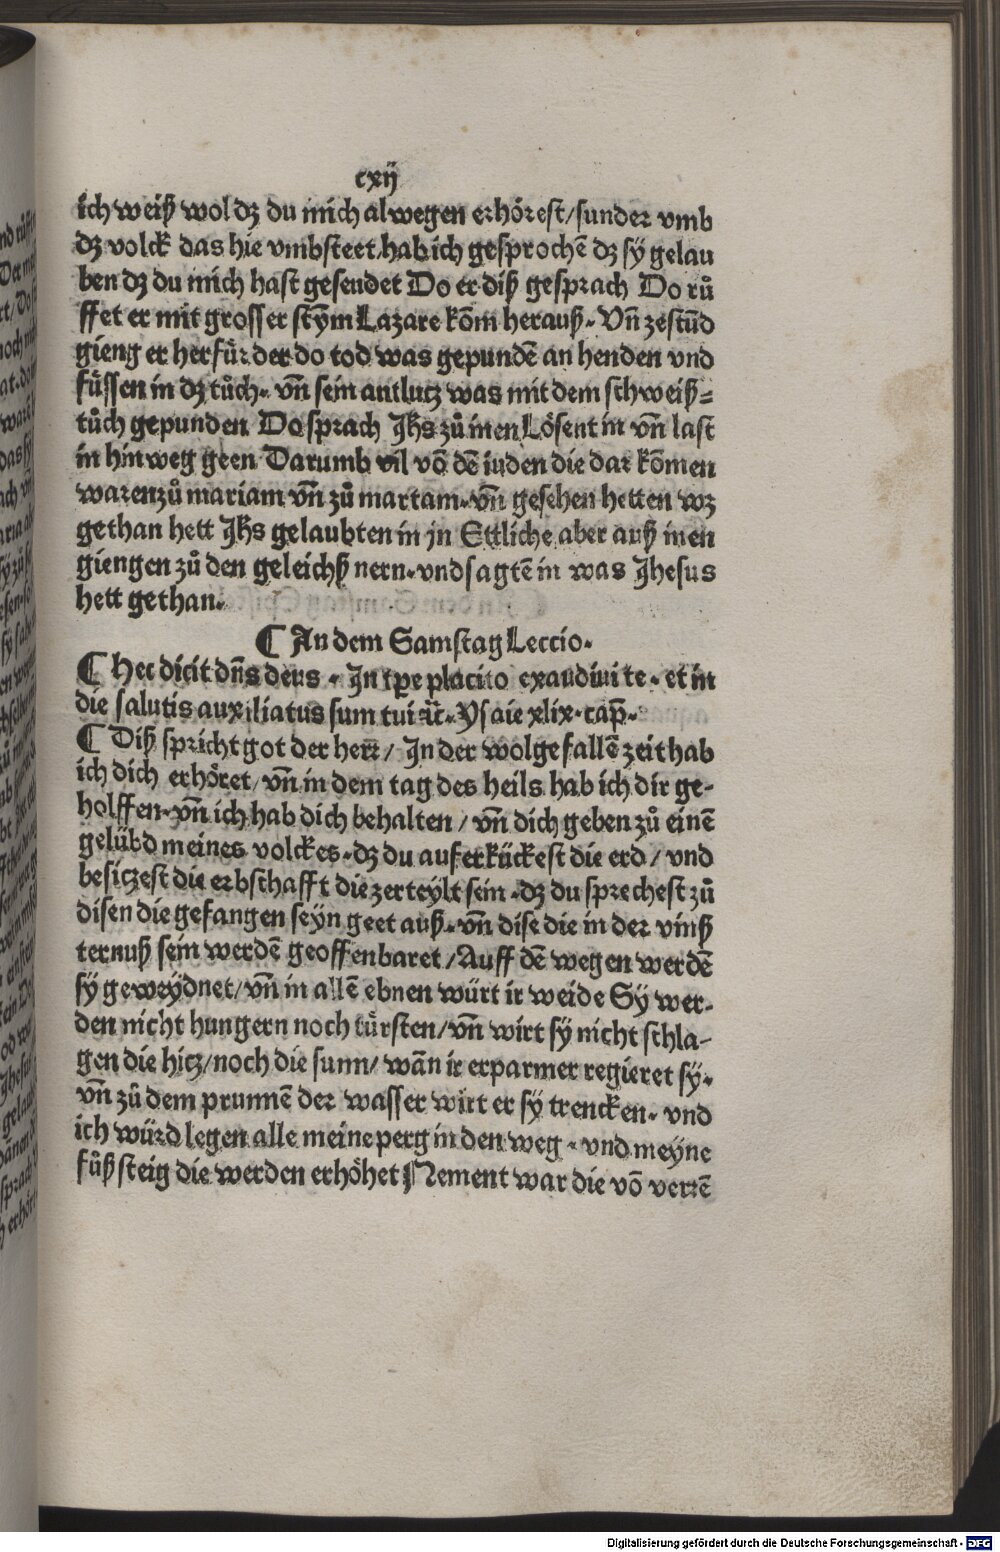 cxij
ich weiß wol dz du mich alwegen erhörest/sunder vmb
dz volck das hie vmbsteet.hab ich gesprochē dz sy̋ gelau
ben dz du mich hast gesendet Do er diß gesprach Do rů
ffet er mit grosser stȳm Lazare kōm herauß. Vn̄ zestūd
gieng er herfür der do tod was gepundē an henden vnd
füssen in dz tůch. vn̄ sein antlutz was mit dem schweiß=
tůch gepunden Do sprach Jhs zů inen Lösent in vn̄ last
in hinweg geen Darumb vil vō dē iuden die dar kōmen
waren zů mariam vn̄ zů martam. vn̄ gesehen hetten wz
gethan hett Jhs gelaubten in jn Ettliche aber auß inen
giengen zů den geleichß nern. vnd sagtē in was Jhesus
hett gethan.
¶ An dem Samstag Leccio.
¶ Hec dicit dn̄s deus . In tp̄e placito exaudiui te . et in
die salutis auxiliatus sum tui ꝛc̄. Ysaie xlix. cap̄.
¶ Diß spricht got der herr̄/ In der wolgefallē zeit hab
ich dich erhöret/vn̄ in dem tag des heils hab ich dir ge-
holffen. vn̄ ich hab dich behalten/vn̄ dich geben zů einē
gelübd meines volckes. dz du auferkückest die erd/vnd
besiczest die erbschafft die zerteylt sein. dz du sprechest zů
disen die gefangen seyn geet auß. vn̄ dise die in der vinß
ternuß sein werdē geoffenbaret/Auff dē wegen werdē
sy̋ geweydnet/vn̄ in allē ebnen würt ir weide Sy̋ wer-
den nicht hungern noch türsten/vn̄ wirt sy̋ nicht schla-
gen die hitz/noch die sunn/wān ir erparmer regieret sy̋.
vn̄ zů dem prunnē der wasser wirt er sy̋ trencken. vnd
ich würd legen alle meine perg in den weg . vnd meyne
fůßsteig die werden erhöhet Nement war die vō verrē
Digitalisierung gefördert durch die Deutsche Forschungsgemeinschaft - DFG